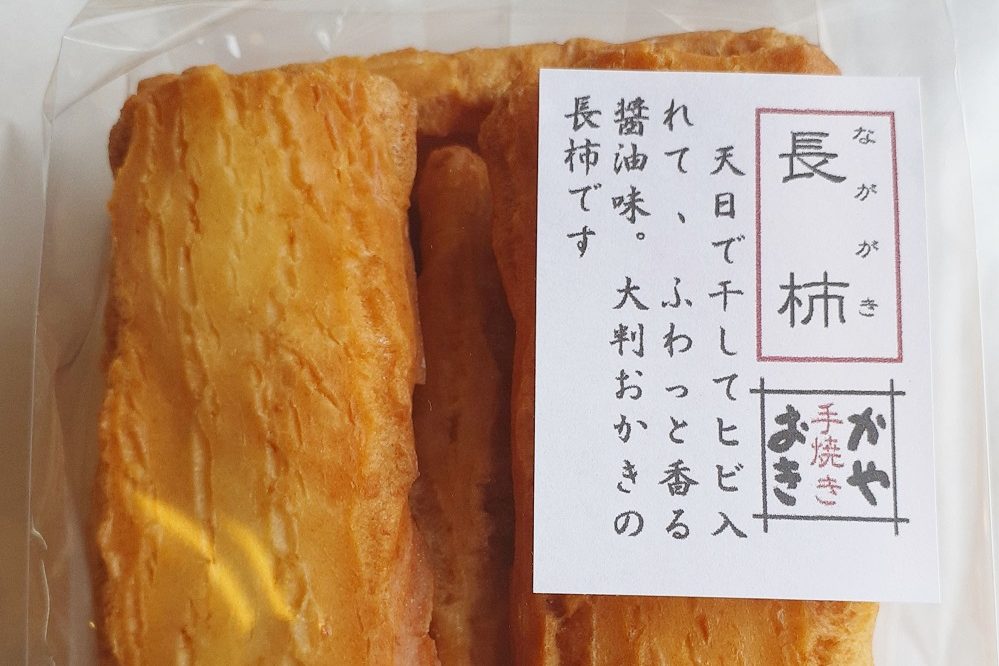 なががき
長柿
天日で干してヒビ入
れて、ふわっと香る
醤油味。大判おかきの
長柿です
手焼き
おかきや